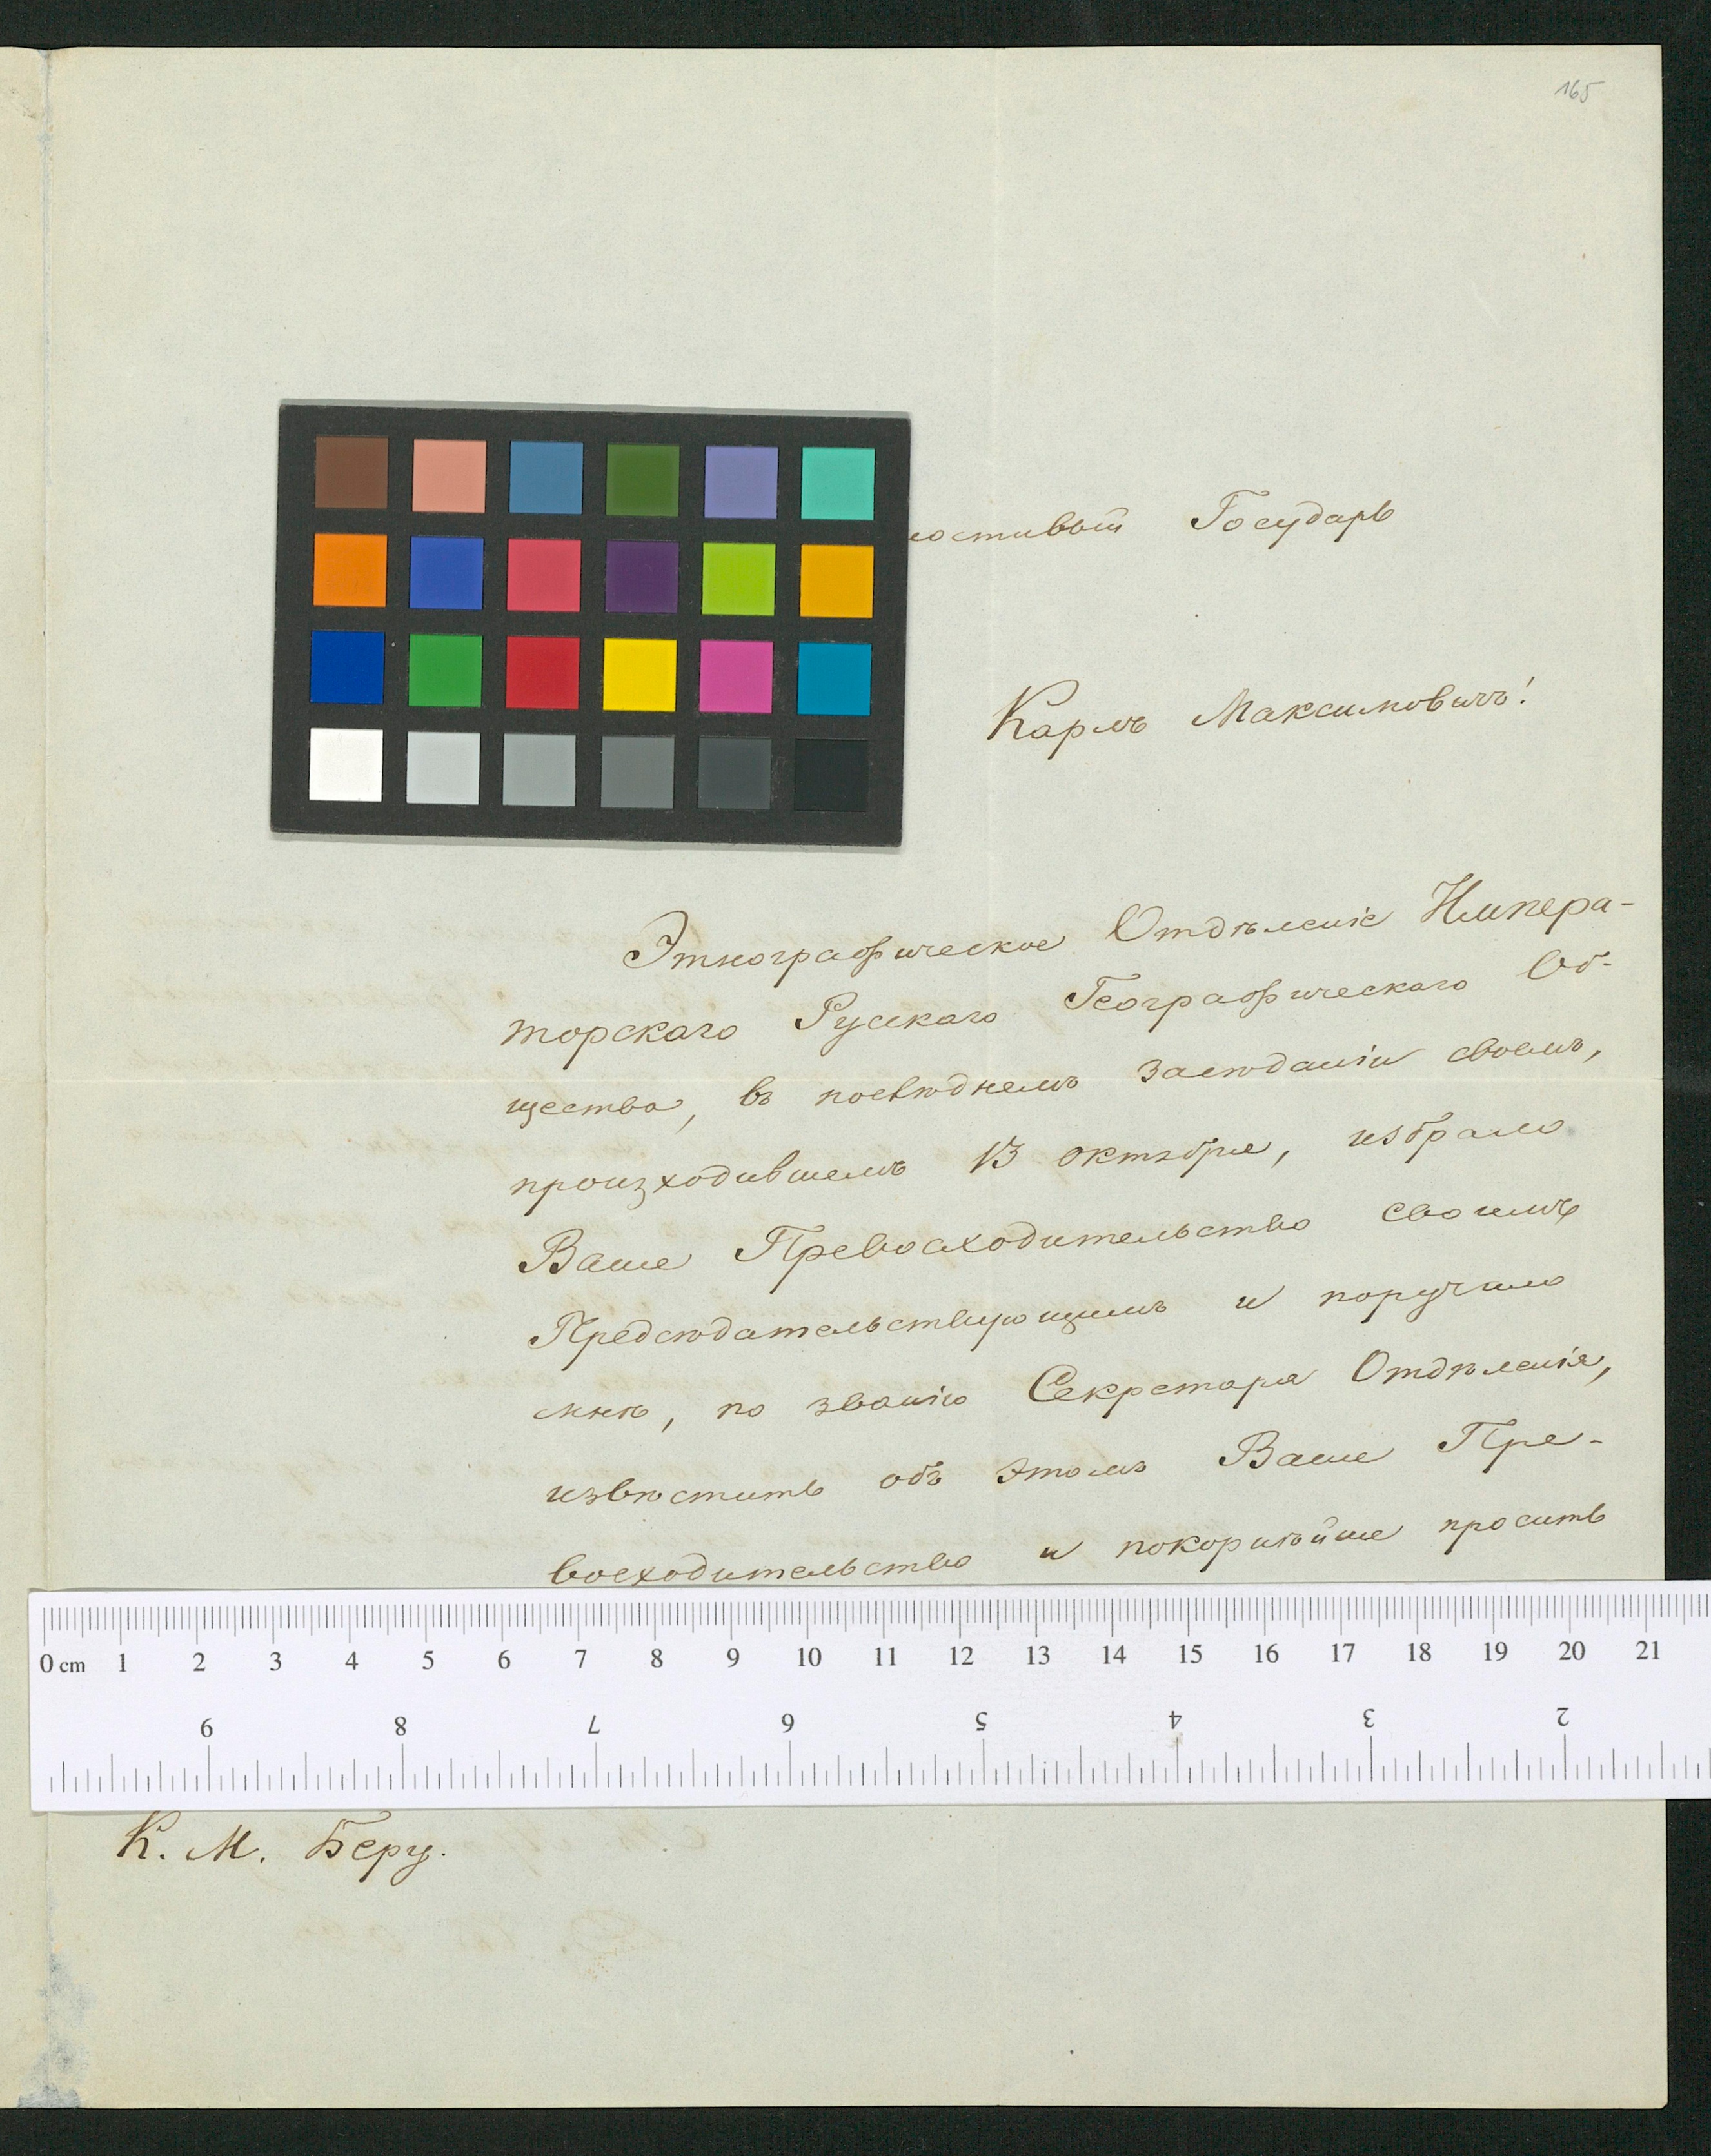 165
остивый Государь
Карлъ Максимовичъ!
Этнографическое Отдѣленіе Импера-
торскаго Русскаго Географическаго Об-
щества, въ послѣднемъ засѣданіи своемъ,
произходившемъ 13 октября, избрало
Ваше Превосходительство своимъ
Предсѣдательствующимъ и поручило
мнѣ, по званію Секретаря Отдѣленія,
извѣстить объ этомъ Ваше Пре-
восходительство и покорнѣйше просить
0 cm 1 2 3 4 5 6 7 8 9 10 11 12 13 14 15 16 17 18 19 20 21
9 8 7 6 5 4 3 2
К. М. Беру.